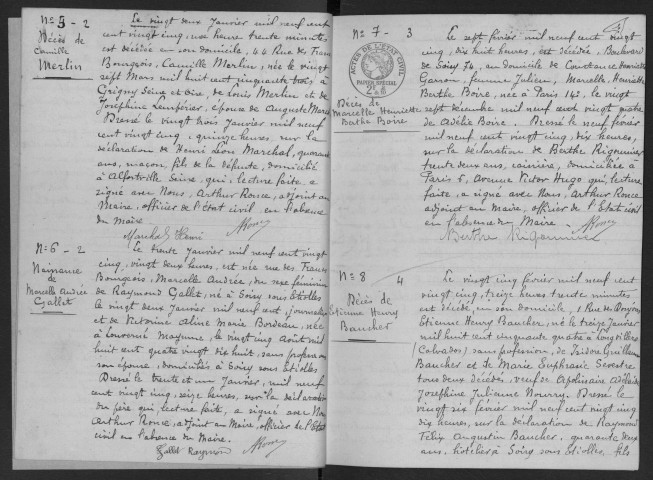 N° 5 - 2
Décès de
Camille
Merlin
Le vingt deux Janvier mil neuf cent
vingt cinq, une heure trente minutes
est décédée en son domicile, 44 Rue des Francs
Bourgeois, Camille Merlin, née le vingt
sept Mars mil huit cent cinquante trois à
Grigny Seine et Oise, de Louis Merlin et de
Joséphine épouse de Auguste
Dressé le vingt trois Janvier mil neuf
cent vingt cinq, quinze heures, sur la
déclaration de Henri Léon Marchal, quarante
ans, maçon, fils de la défunte, domicilié
à Alfortville Seine, qui, lecture faite a
signé avec Nous, Arthur Rouce, adjoint au
Maire, officier de l'état civil en l'absence
du Maire.
Marchal Henri
N° 6 - 2
Naissance
de
Marcelle Andrée
Gallet
Le trente Janvier mil neuf cent vingt
cinq, vingt deux heures, est née rue des Francs
Bourgeois, Marcelle Andrée, du sexe féminin
de Raymond Gallet, né à Soisy sous Etiolles
le vingt deux Janvier mil neuf cent, journalier
et de Victorine Aline Marie Bordeau, née
à Louverné Mayenne, le vingt Août mil
huit cent quatre vingt dix huit, sans profession
son épouse, domiciliés à Soisy sous Etiolles
Dressé le trente et un Janvier, mil neuf
cent vingt cinq, seize heures, sur la déclaration
du père qui, lecture faite, a signé avec Nous
Arthur Rouce, adjoint au Maire, officier de l'Etat
civil en l'absence du Maire.
Gallet Raymond
N° 7 - 3
ACTES DE L'ETAT CIVIL
PAPIER SPECIAL
Décès de
Marcelle Henriette
Berthe Boire
Le sept février mil neuf cent vingt
cinq, dix huit heures, est décédée, Boulevard
de Soisy 74, au domicile de Constance Henriette
femme Julien, Marcelle, Henriette
Berthe Boire, née à Paris 14e, le vingt
sept décembre mil neuf cent vingt quatre
de Adélie Boire. Dressé le neuf février
mil neuf cent vingt cinq, dix heures,
sur la déclaration de Berthe
trente deux ans, caissière, domiciliée à
Paris 5, Avenue Victor Hugo qui, lecture
faite, a signé avec Nous, Arthur Rouce
adjoint au Maire, officier de l'Etat civil
en l'absence du Maire.
Berthe
N° 8 4
Décès de
Etienne Henry
Baucher
Le vingt cinq février mil neuf cent
vingt cinq, treize heures trente minutes
est décédé, en son domicile, 1 Rue des
Etienne Henry Baucher, né le treize Janvier
mil huit cent cinquante quatre à
(Calvados) sans profession, de Isidore Guillaume
Baucher et de Marie Euphrasie Sevestre
tous deux décédés, veuf de Apolinaire Adélaïde
Joséphine Julienne Nourry. Dressé le
vingt six février mil neuf cent vingt cinq
dix heures, sur la déclaration de Raymond
Félix Augustin Baucher, quarante deux
ans, hôtelier à Soisy sous Etiolles, fils